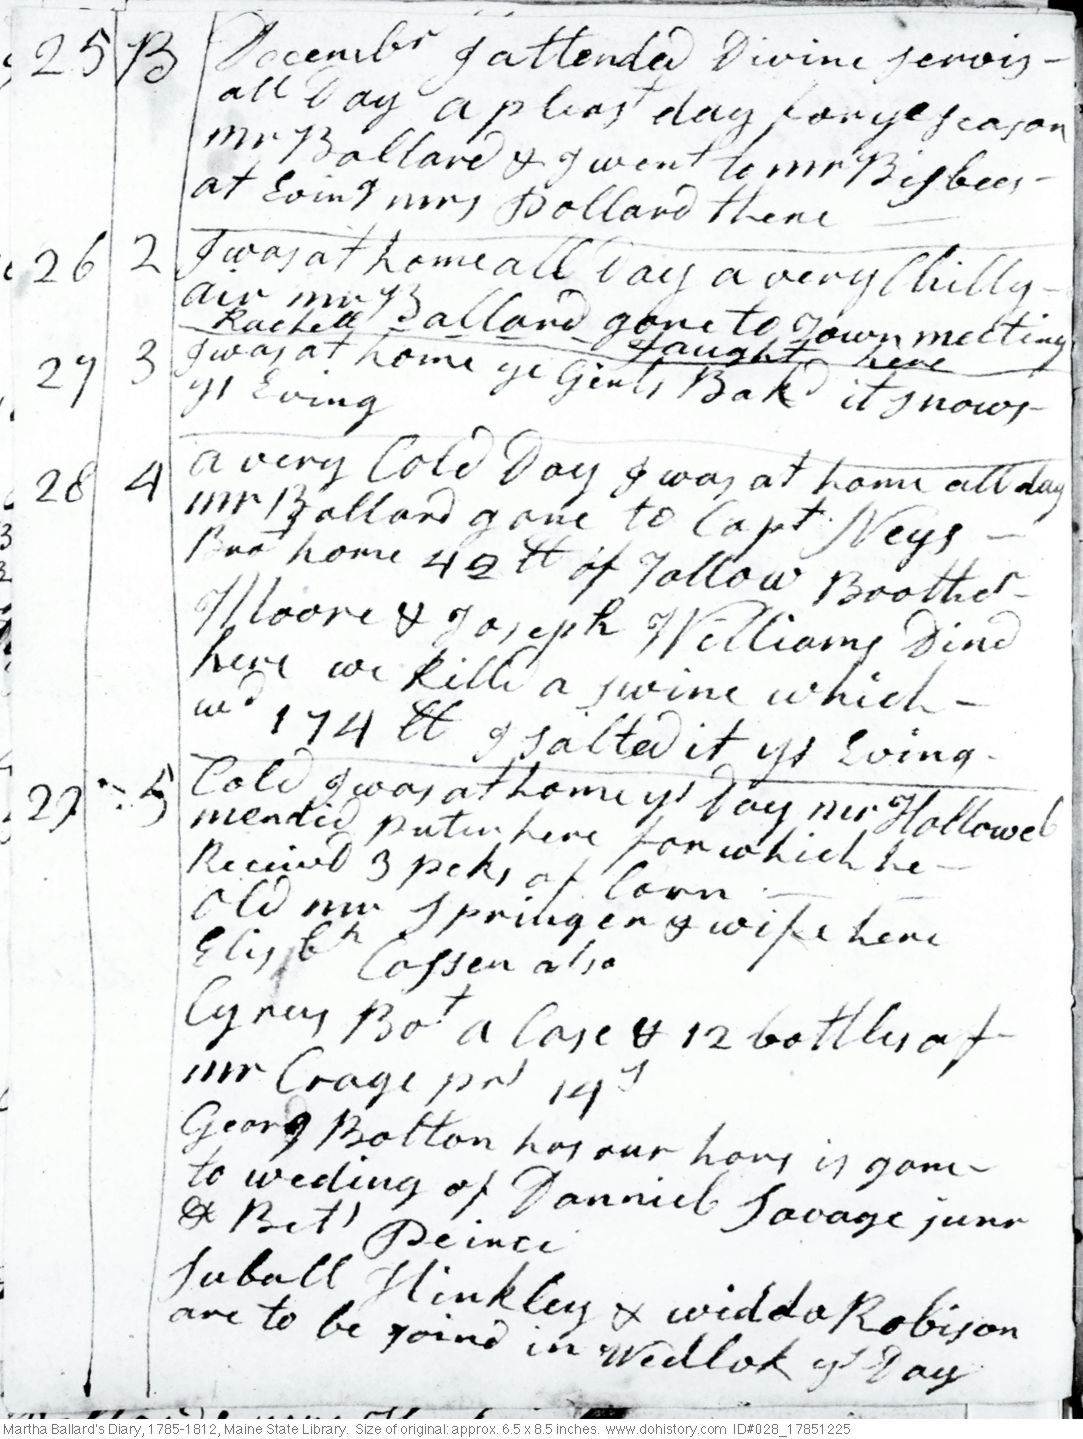 25 B Decembr I attended Divine servis -
all Day a pleast day for ye season
mr Ballard & I went to mr Bisbees -
at Evin'g mrs Pollard there
26 2 I was at home all Day a very Chilly -
air mr Ballard gone to Town meeting
Rachell Faught here
27 3 I was at home ye Girls Bakd it snows -
ys Evin'g
28 4 a very Cold Day I was at home all day
mr Ballard gone to Capt Neys -
Brot home 42 tt of Tallow Boother -
Moore & Joseph Williams Dind
here we killd a swine which -
wd 174 tt I salted it ys Evin'g -
29 5 Cold I was at home ys Day mr Hallowel
mendid puter here for which he -
Received 3 peks of Corn -
Old mr Springer & wife here
Elisbh Cossen also
Cyrus Bot a Case & 12 bottles of
mr Crage prs 14 s
Georg Botton has our hors is gone -
to weding of Danniel Savage junr
& Bets Peirce
Suball Hinkley & widdo Robison
are to be joind in Wedlok ys Day
Martha Ballard's Diary, 1785-1812, Maine State Library. Size of original: approx. 6.5 x 8.5 inches. www.dohistory.com ID#028_17851225